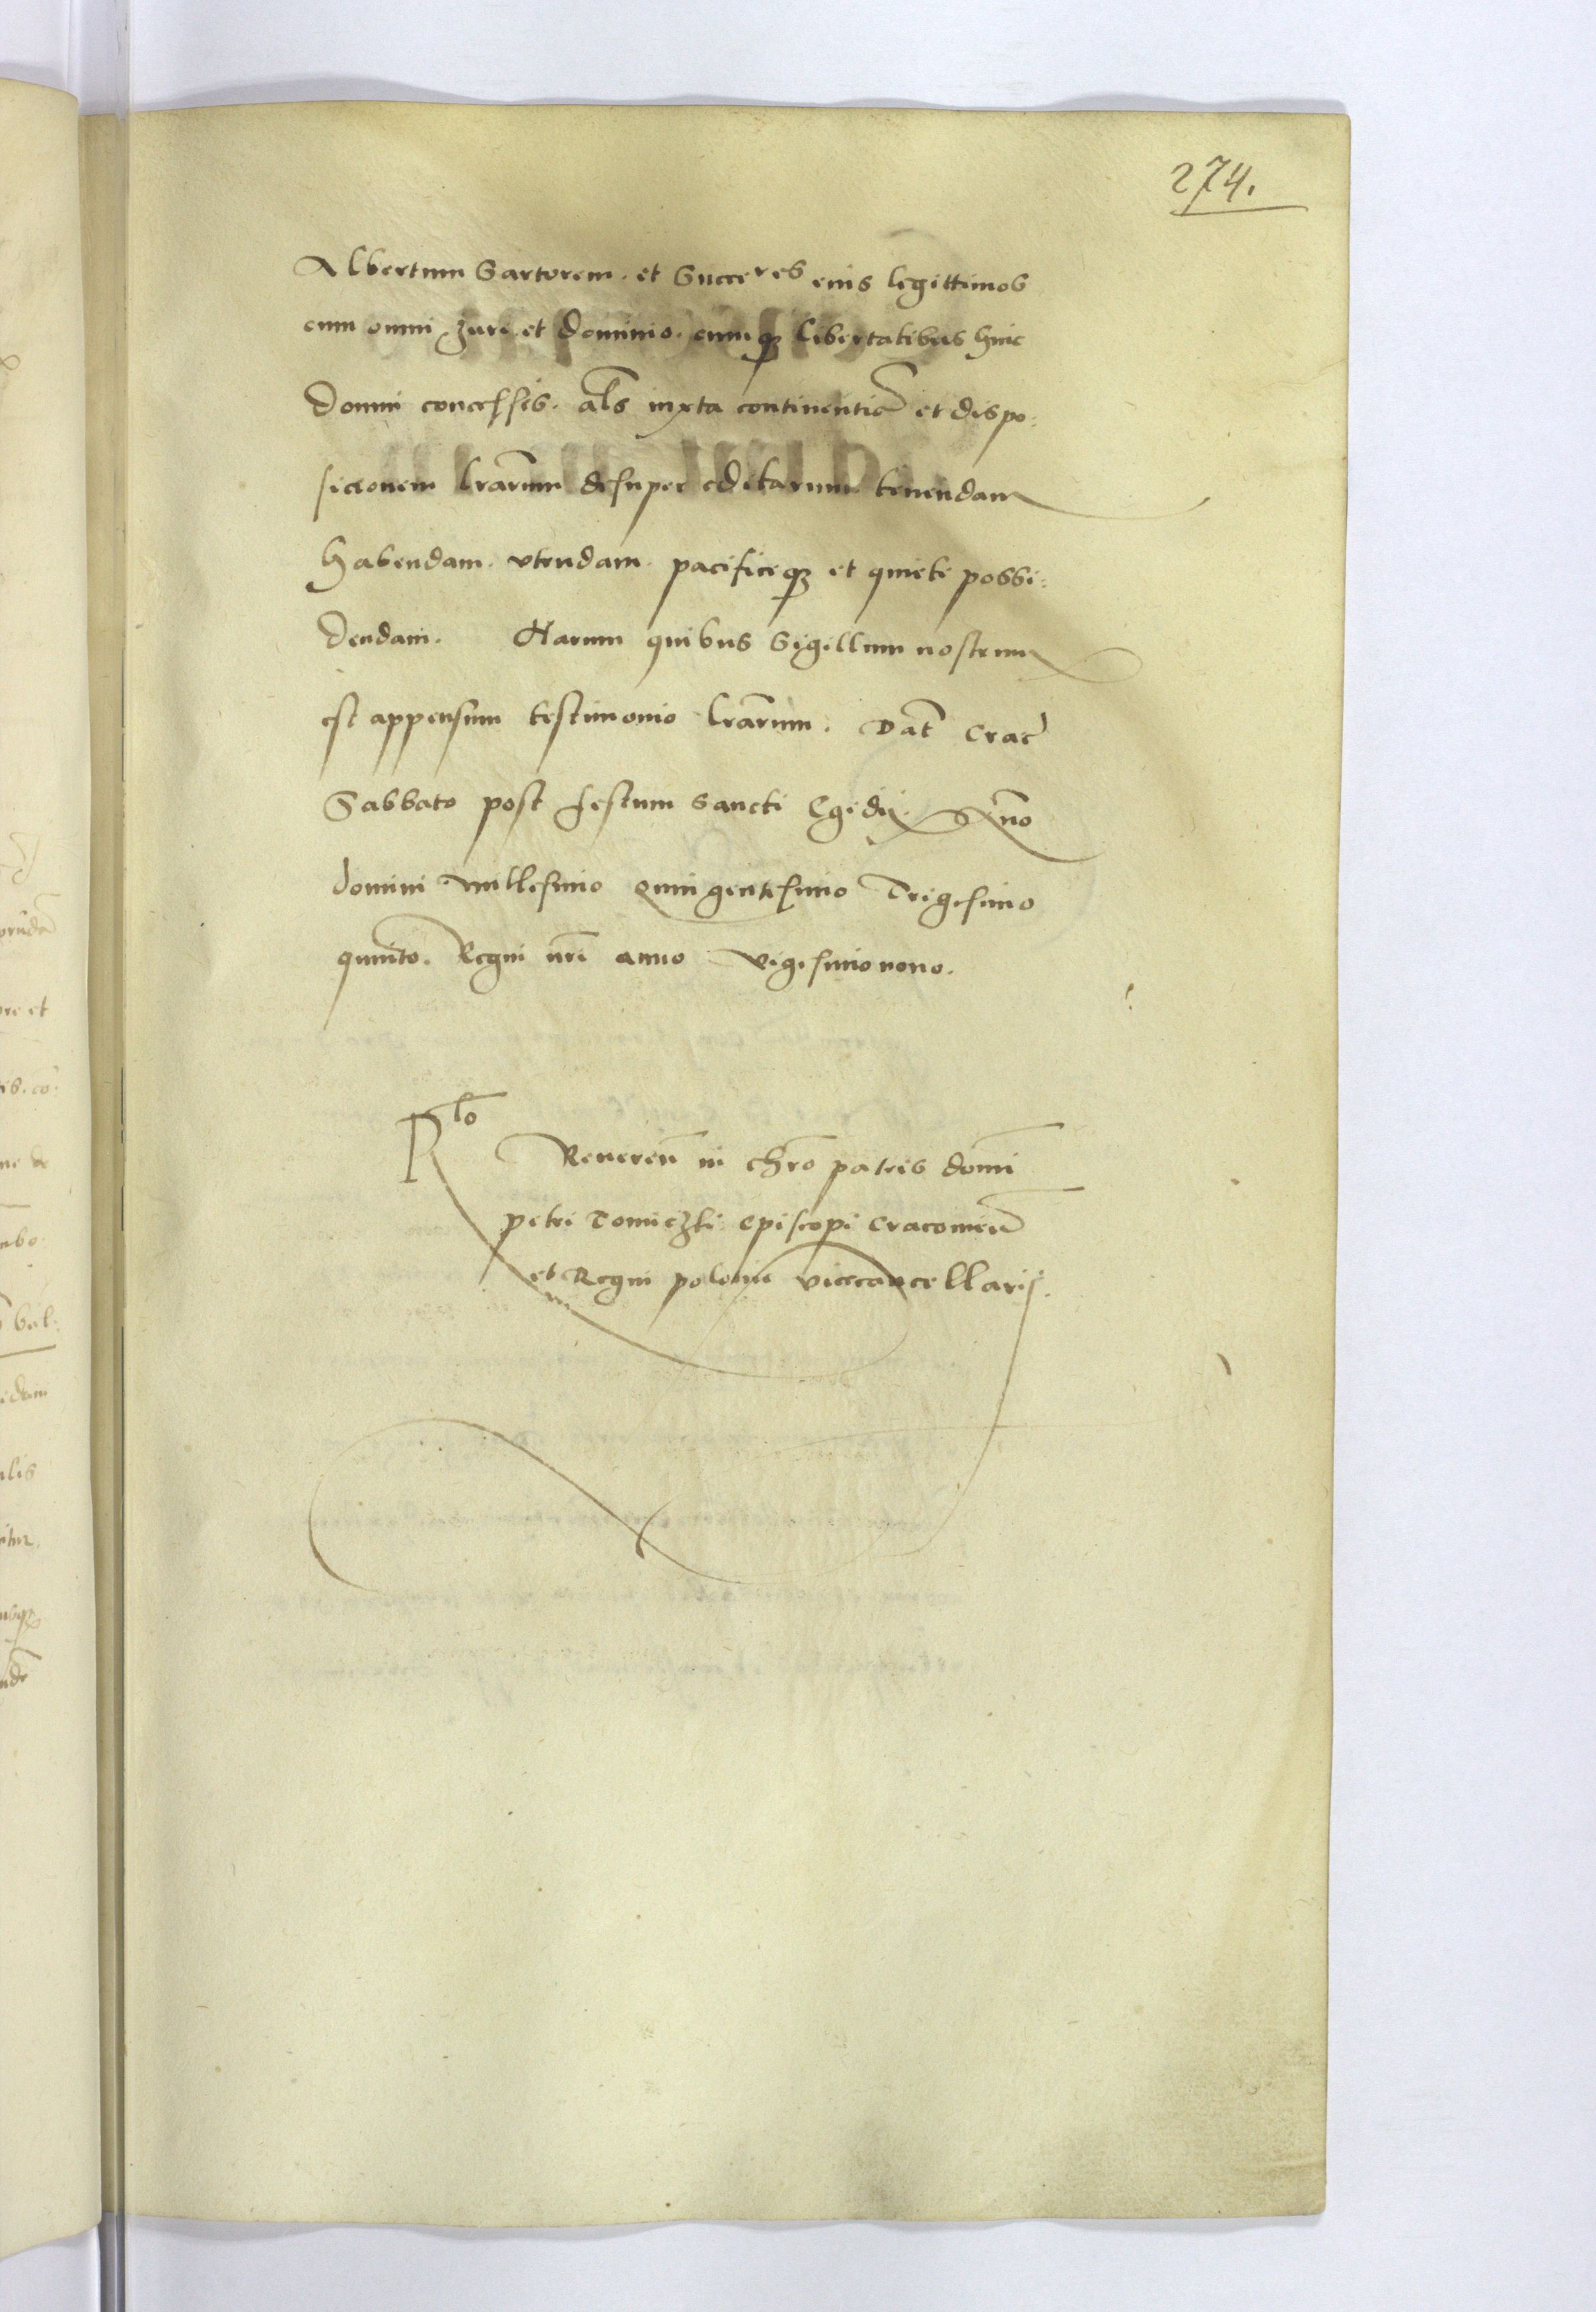 274.
Albertum Sartorem. et Succeres eius legittimos
cum omni Jure et dominio. cumqȝ libertatibus huic
domui concessis. als̄ iuxta continentiā et dispo:
sicionem lrārum desuper editarum tenendam
habendam. vtendam. pacificeqȝ et quiete possi:
dendam. Harum quibus Sigillum nostrum
est appensum testimonio lrārum. Dat̄ Crac̄
Sabbato post festum sancti Egidij. Anō
domini millesimo quingentesimo Trigesimo
quinto. Regni nrī anno vigesimonono.
Rlo
Reueren̄ in chrō patris domī
petri Tomiczki Episcopi Cracouien̄
et Regni polonie vicecancellarij.